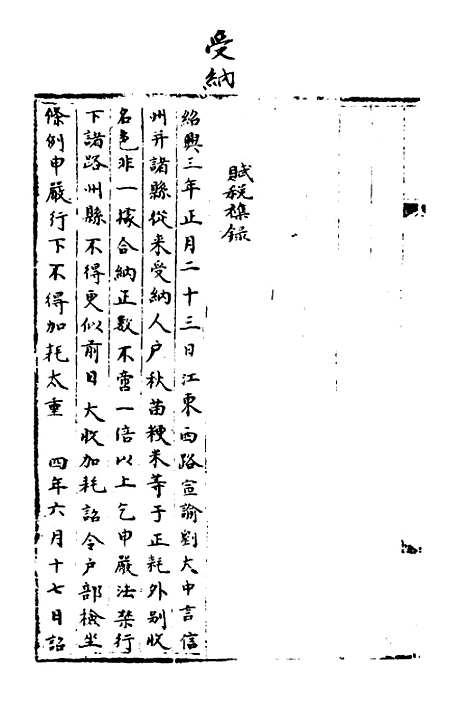 受納
賦税襍録
紹興三年正月二十三日江東西路宣諭劉大中言信
州并諸縣從来受納人户秋苗粳米等于正耗外别收
名色非一據合納正數不啻一倍以上乞申嚴法禁行
下諸路州縣不得更似前日大收加耗詔令户部檢坐
條例申嚴行下不得加耗太重　四年六月十七日詔